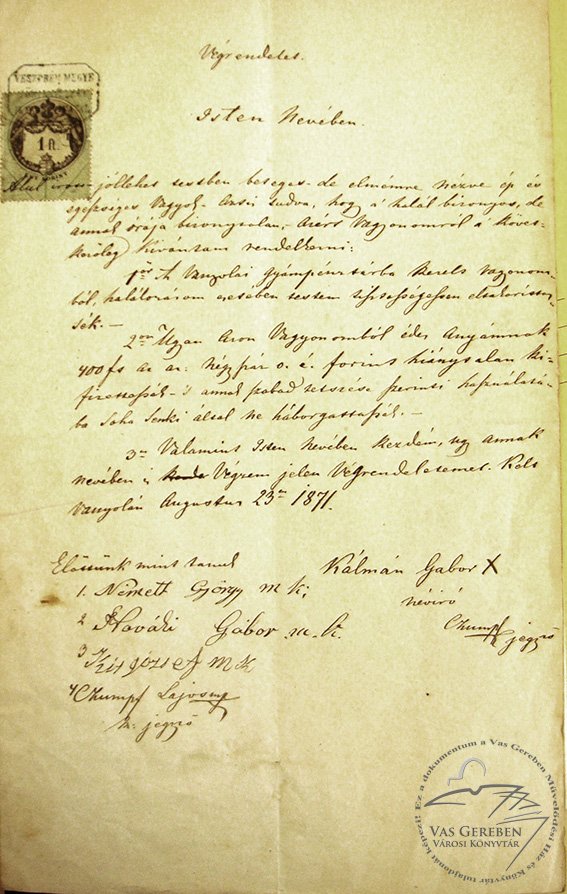 Végrendelet.
VESZPRÉM MEGYE
Isten Nevében.
1 ft.
Alul jóllehet testben beteges de elmémre nézve ép és
egéssséges vagyok. Azért tudva, hogy a halál bizonyos, de
annak órája bizonytalan, azért Vagyonomról a Követ-
kezőleg Kívántam rendelkezni:
1ör A Vanyolai gyámpénztárba Vagyonom-
ból, halálozásom esetében testem tisztességessen eltakaríttas-
sék. —
2or Ugyan azon Vagyonomból édes Anyámnak
400 ft az az: Négy száz o. é. forint hiánytalan ki-
fizettessék - s annak szabad tetszése szerinti használatá-
ba Soha Senki által ne háborgattassék. —
3or Valamint Isten Nevében kezdém, úgy annak
nevében Végzem jelen Végrendeletemet. Kelt
Vanyolán Augustus 23án 1871.
Előttünk mint tanuk
1. Németh György m k;
2 Gábor m. k.
3 Kis József m k
4 Chumpf Lajos mk
jegyző
Kálmán Gabor X
névíró
Chumpf
jegyző
Ez a dokumentum a Vas Gereben Művelődési Ház és Könyvtár tulajdonát képezi!
VAS GEREBEN
VÁROSI KÖNYVTÁR